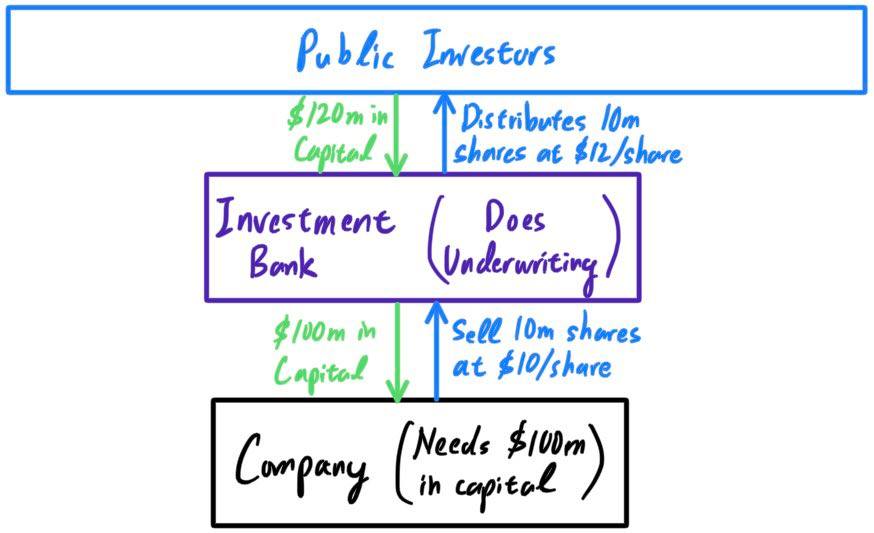 Public Investors
$120m in
Capital
Distributes 10m
shares at $12/share
Investment
Bank
(Does
Underwriting)
$100m in
Capital
Sell 10m shares
at $10/share
Company
(Needs $100m
in capital)